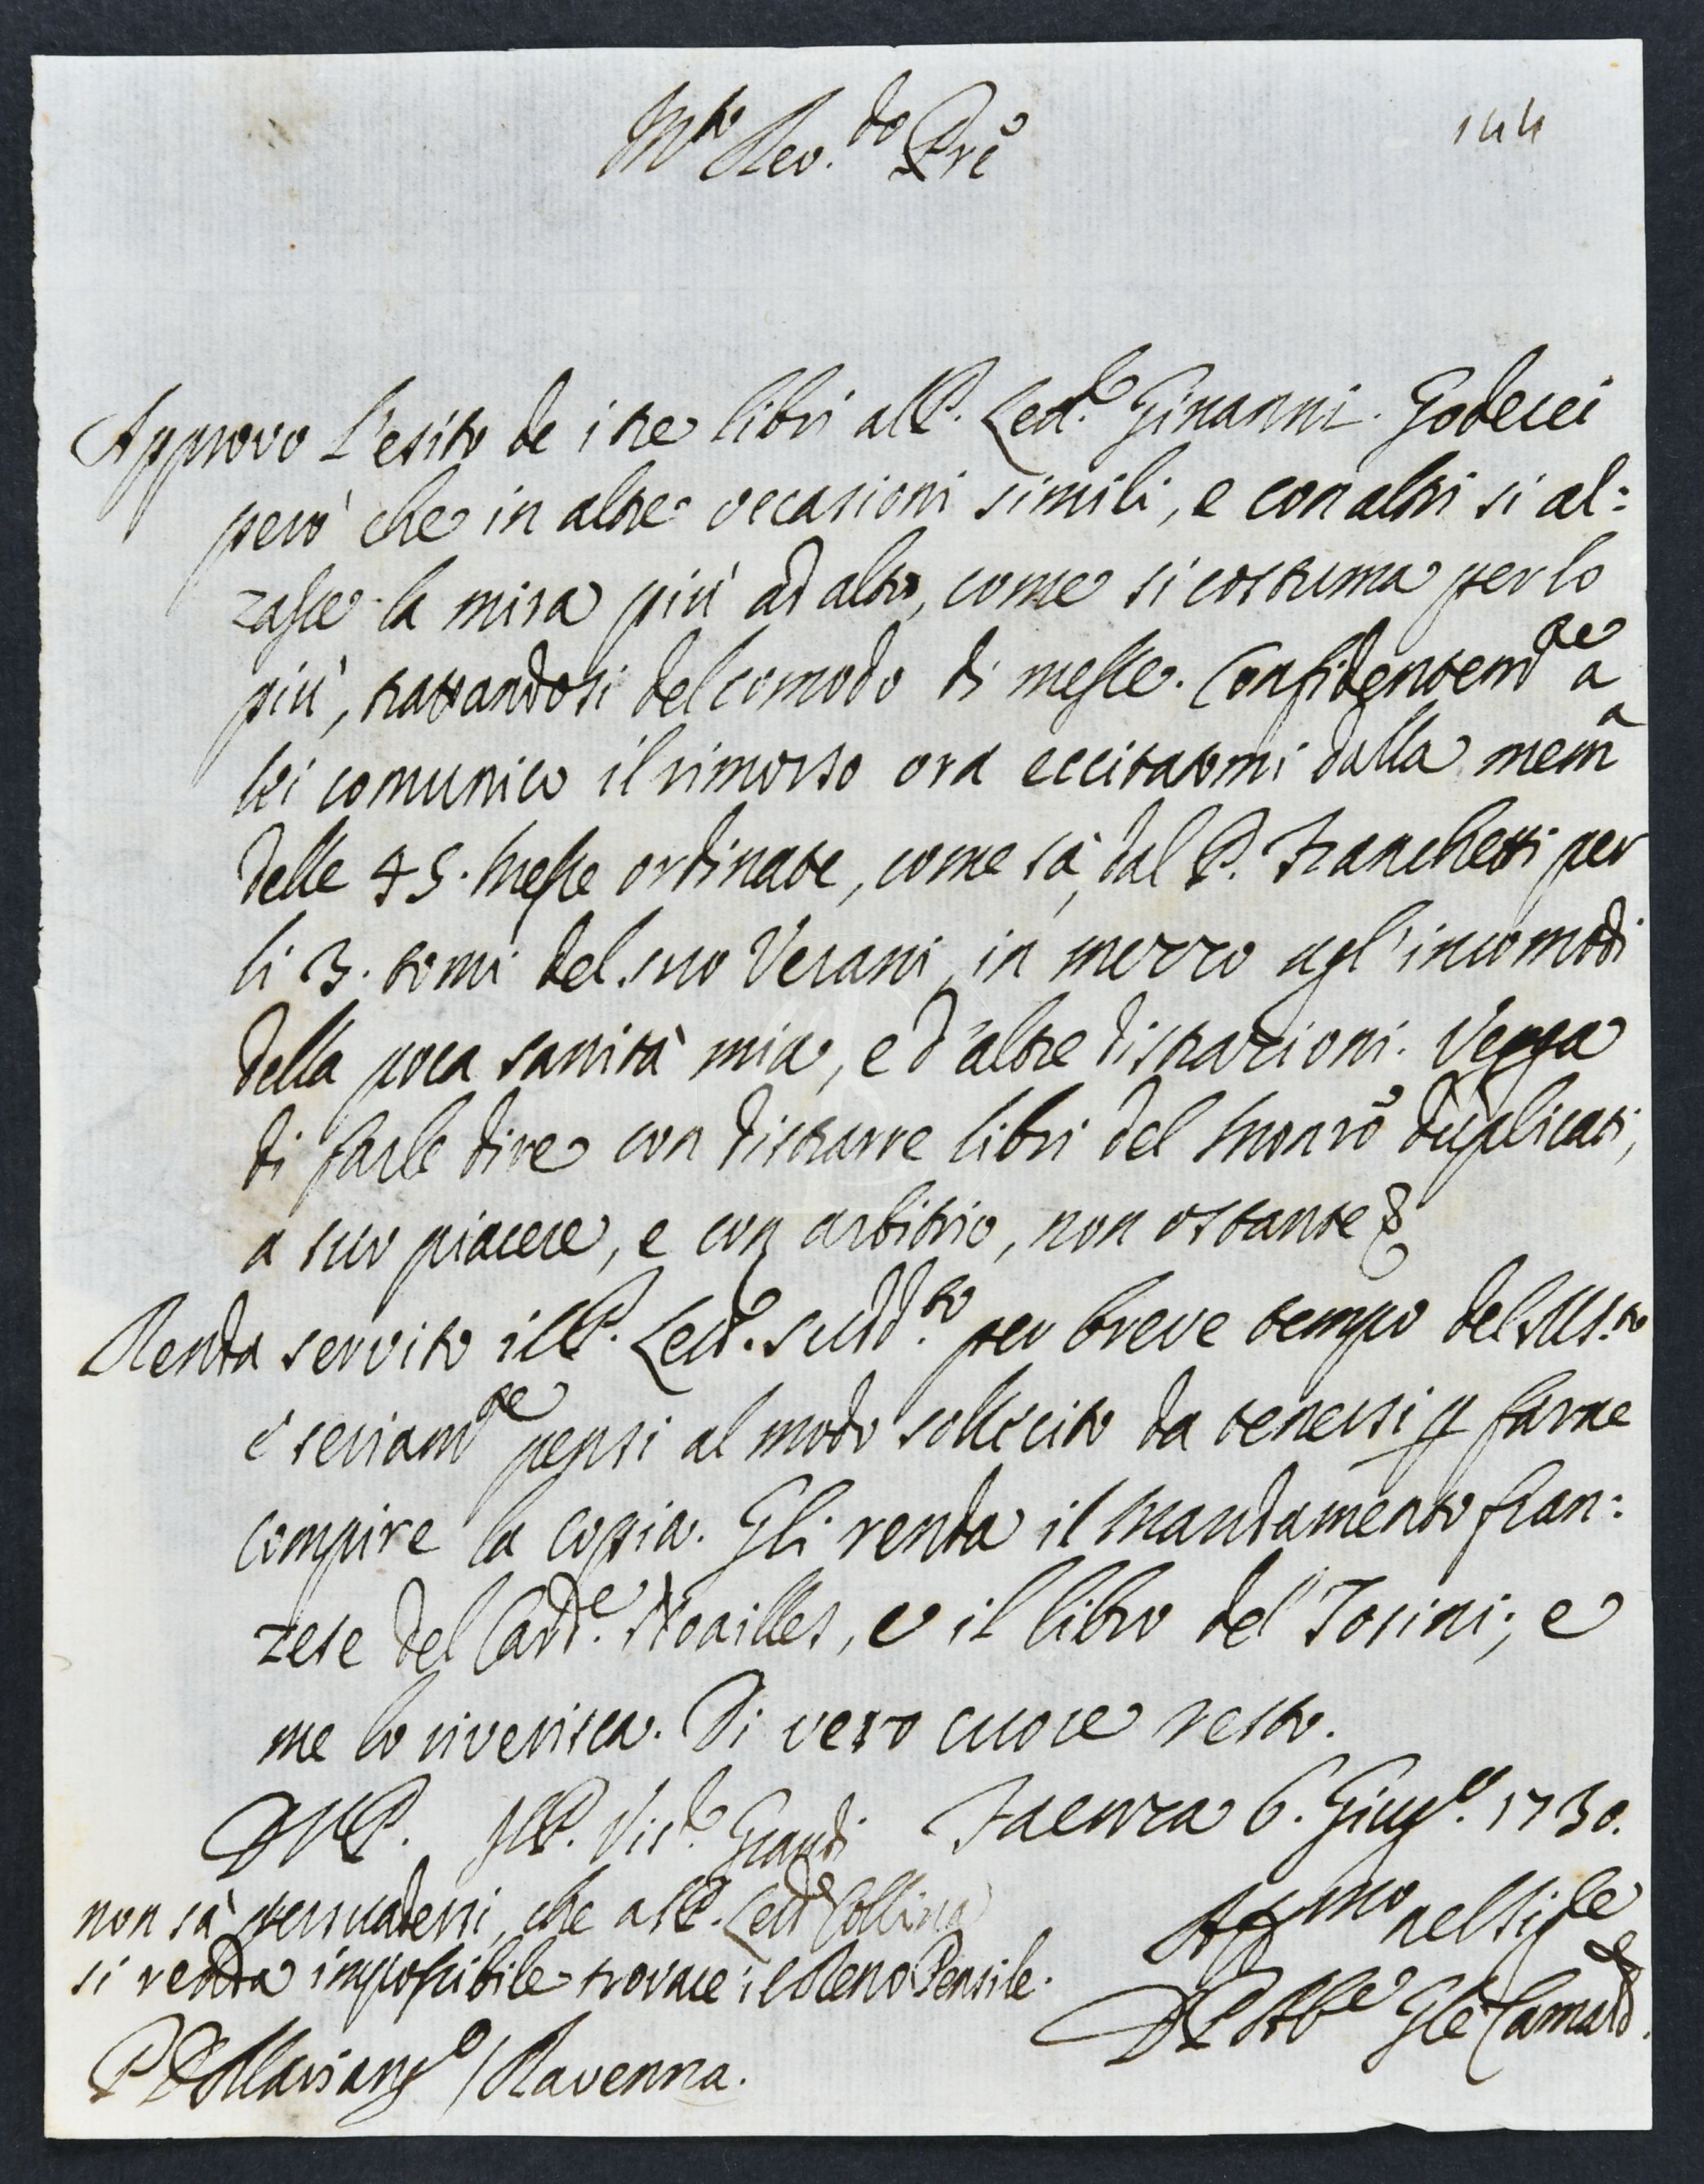 M.to Rev.do Pre
144
Approvo l'esito de i tre libri al P. Lett.e Ginanni. Goderei
però che in altre occasioni simili, e con altri si al:
zasse la mira più ad alto, come si costuma per lo
più, trattandosi del comodo di messe. Confidentem.te a
lei comunico il rimorso ora eccitatomi dalla mem.a
delle 45. messe ordinate, come sà, dal P. Franchetti per
li 3. tomi del suo Verani, in mezzo agl'incomodi
della poca sanità mia, e d'altre distrazioni. Vegga
di farle dire con distrarre libri del Monro duplicati,
a suo piacere, e con arbitrio, non ostante &
Renda servito il P. Lett. sudd.to per breve tempo del Ms.to
e seriam.te pensi al modo sollecito da tenersi p farne
compire la copia. Gli renda il Mandamento fran:
zese del Card.e Noailles, e il libro del Tosini; e
me lo riverisca. Di vero cuore resto.
D V.P. Il P. Vis.e Grandi Faenza 6. Giug.o 1730.
non sà persuadersi, che al P. Lett.e Collina
si renda impossibile trovare il Reno Pensile.
Aff.mo nel Sig.re
D P Ab.e Gle Camald.
P D Mariang.o / Ravenna.